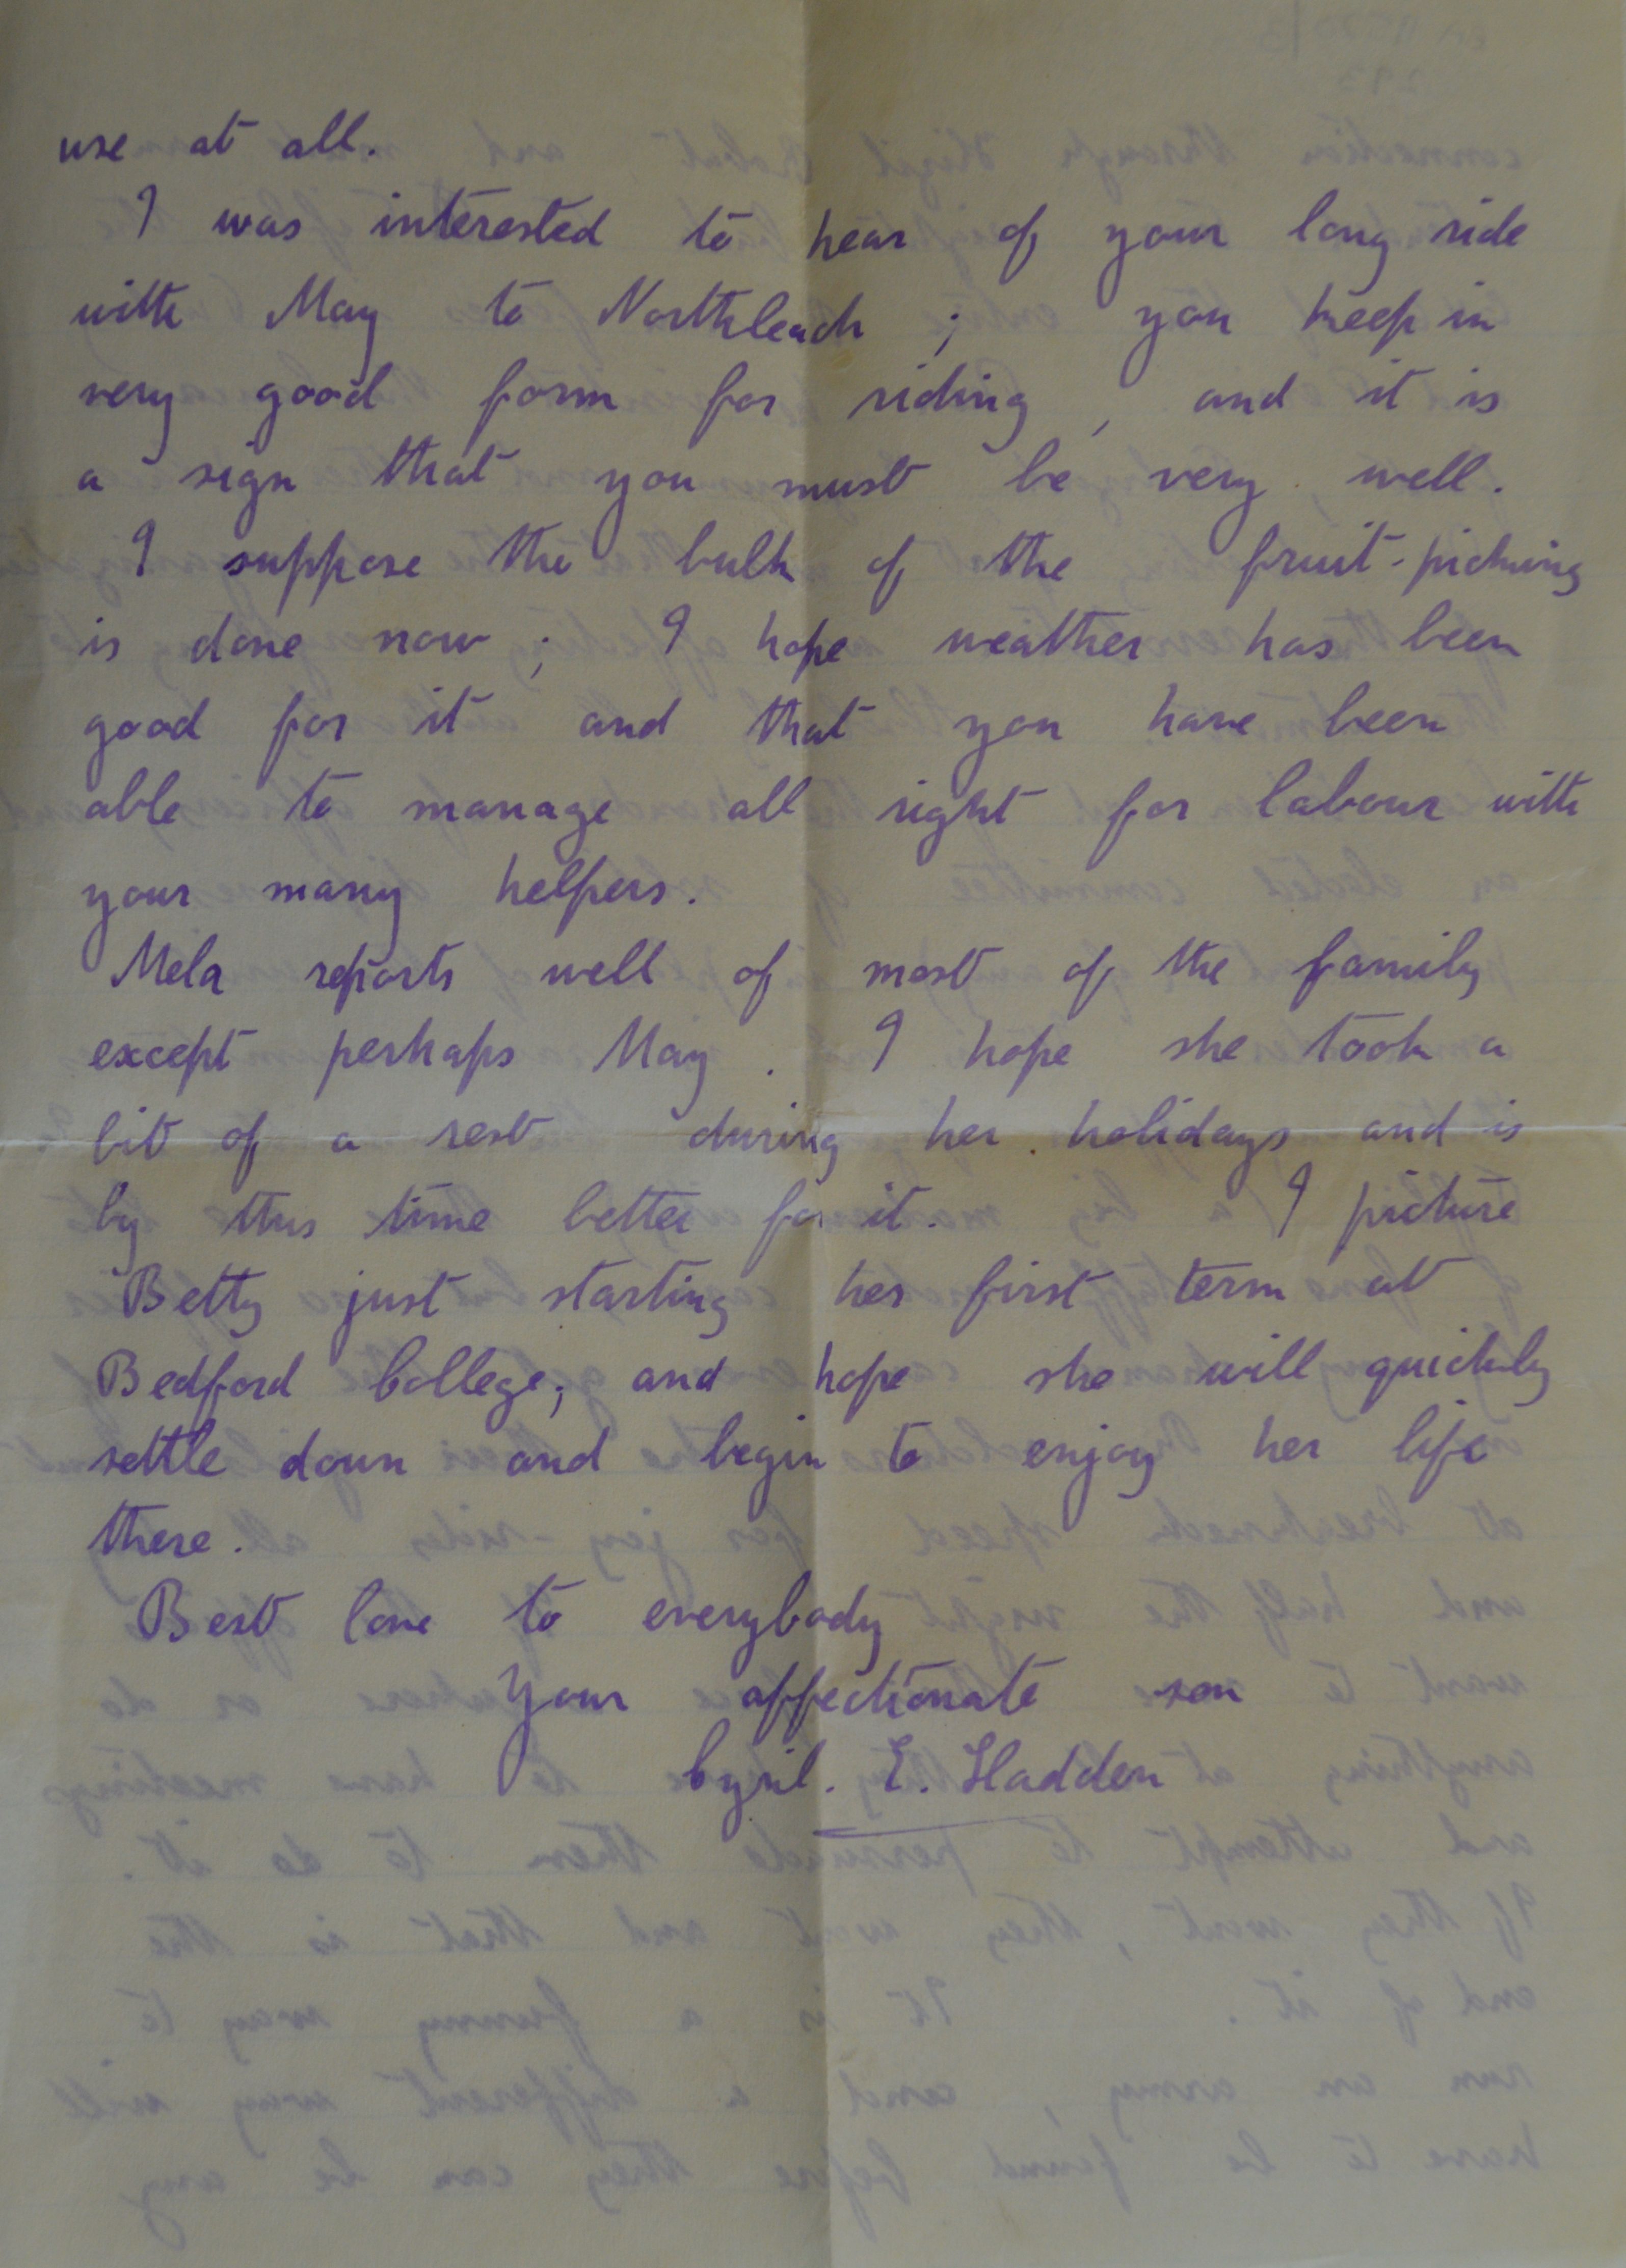 use at all.
I was interested to hear of your long ride
with May to Northleach ; you keep in
very good form for riding, and it is
a sign that you must be very well.
I suppose the bulk of the fruit-picking
is done now ; I hope weather has been
good for it and that you have been
able to manage all right for labour with
your many helpers.
Mela reports well of most of the family
except perhaps May. I hope she took a
bit of a rest during her holidays and is
by this time better for it. I picture
Betty just starting her first term at
Bedford College; and hope she will quickly
settle down and begin to enjoy her life
there.
Best love to everybody
Your affectionate son
Cyril. E. Hadden